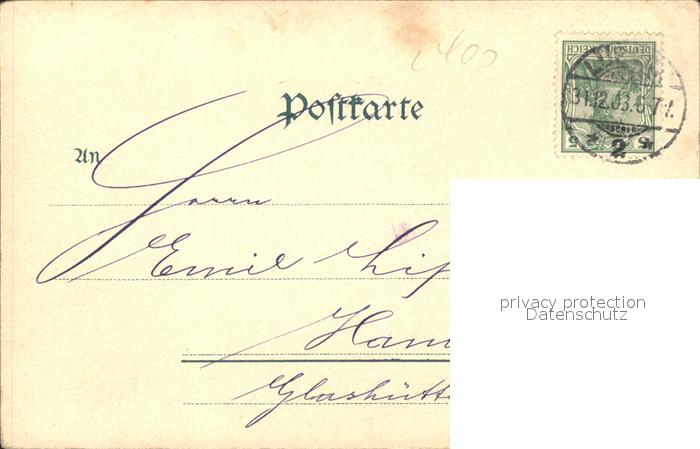 2400
Postkarte
DEUTSCHES REICH
5 5
31.12.03. 6-7 N.
* 2 *
An
Herrn
Emil Lip
Ham
Glashütte
privacy protection
Datenschutz